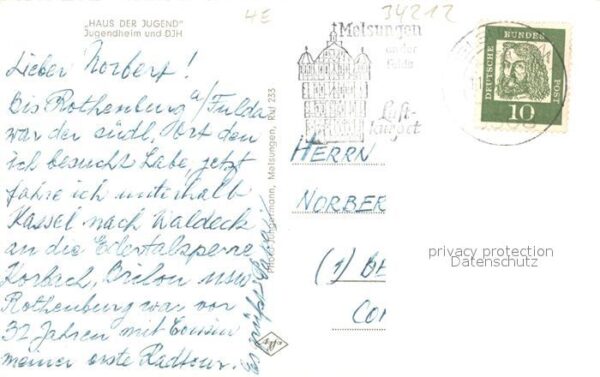 „HAUS DER JUGEND"
Jugendheim und DJH
4E
34212
Lieber Norbert!
Bis Rothenburg a/Fulda
war der südl. Ort den
ich besucht habe, jetzt
fahre ich unterhalb
Kassel nach Waldeck
an die Edertalsperre
Korbach, Brilon usw
Rothenburg war vor
32 Jahren mit Cousin
meiner erste Radtour.
Es grüßt
Melsungen, RV 233
Melsungen
an der
Fulda
Luft-
kurort
DEUTSCHE BUNDESPOST
10
HERRN
NORBER
(1) BE
privacy protection
Datenschutz